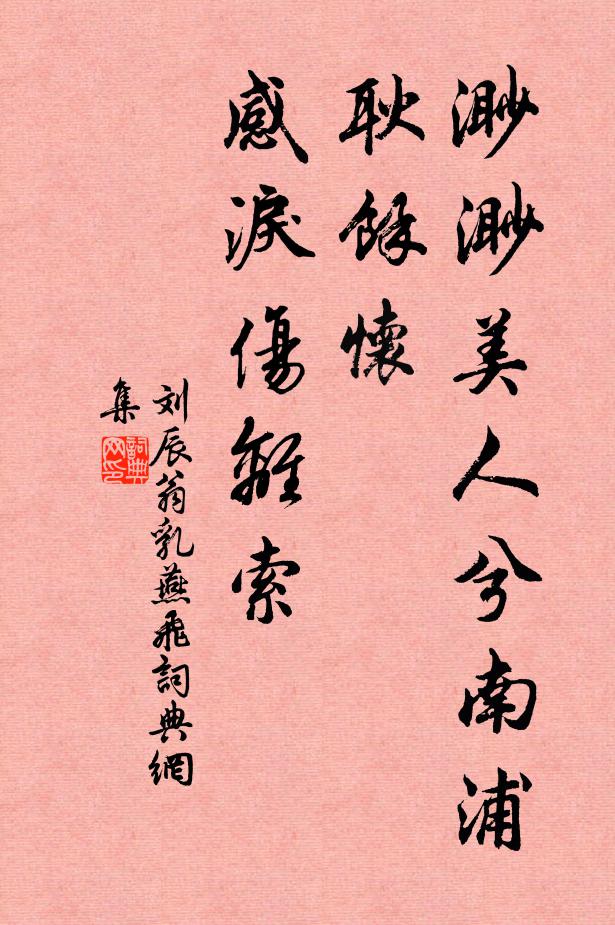 渺渺美人兮南浦
耿馀懷
感淚傷離索
刘辰翁乳燕飛詞典網
集
詞典
网印